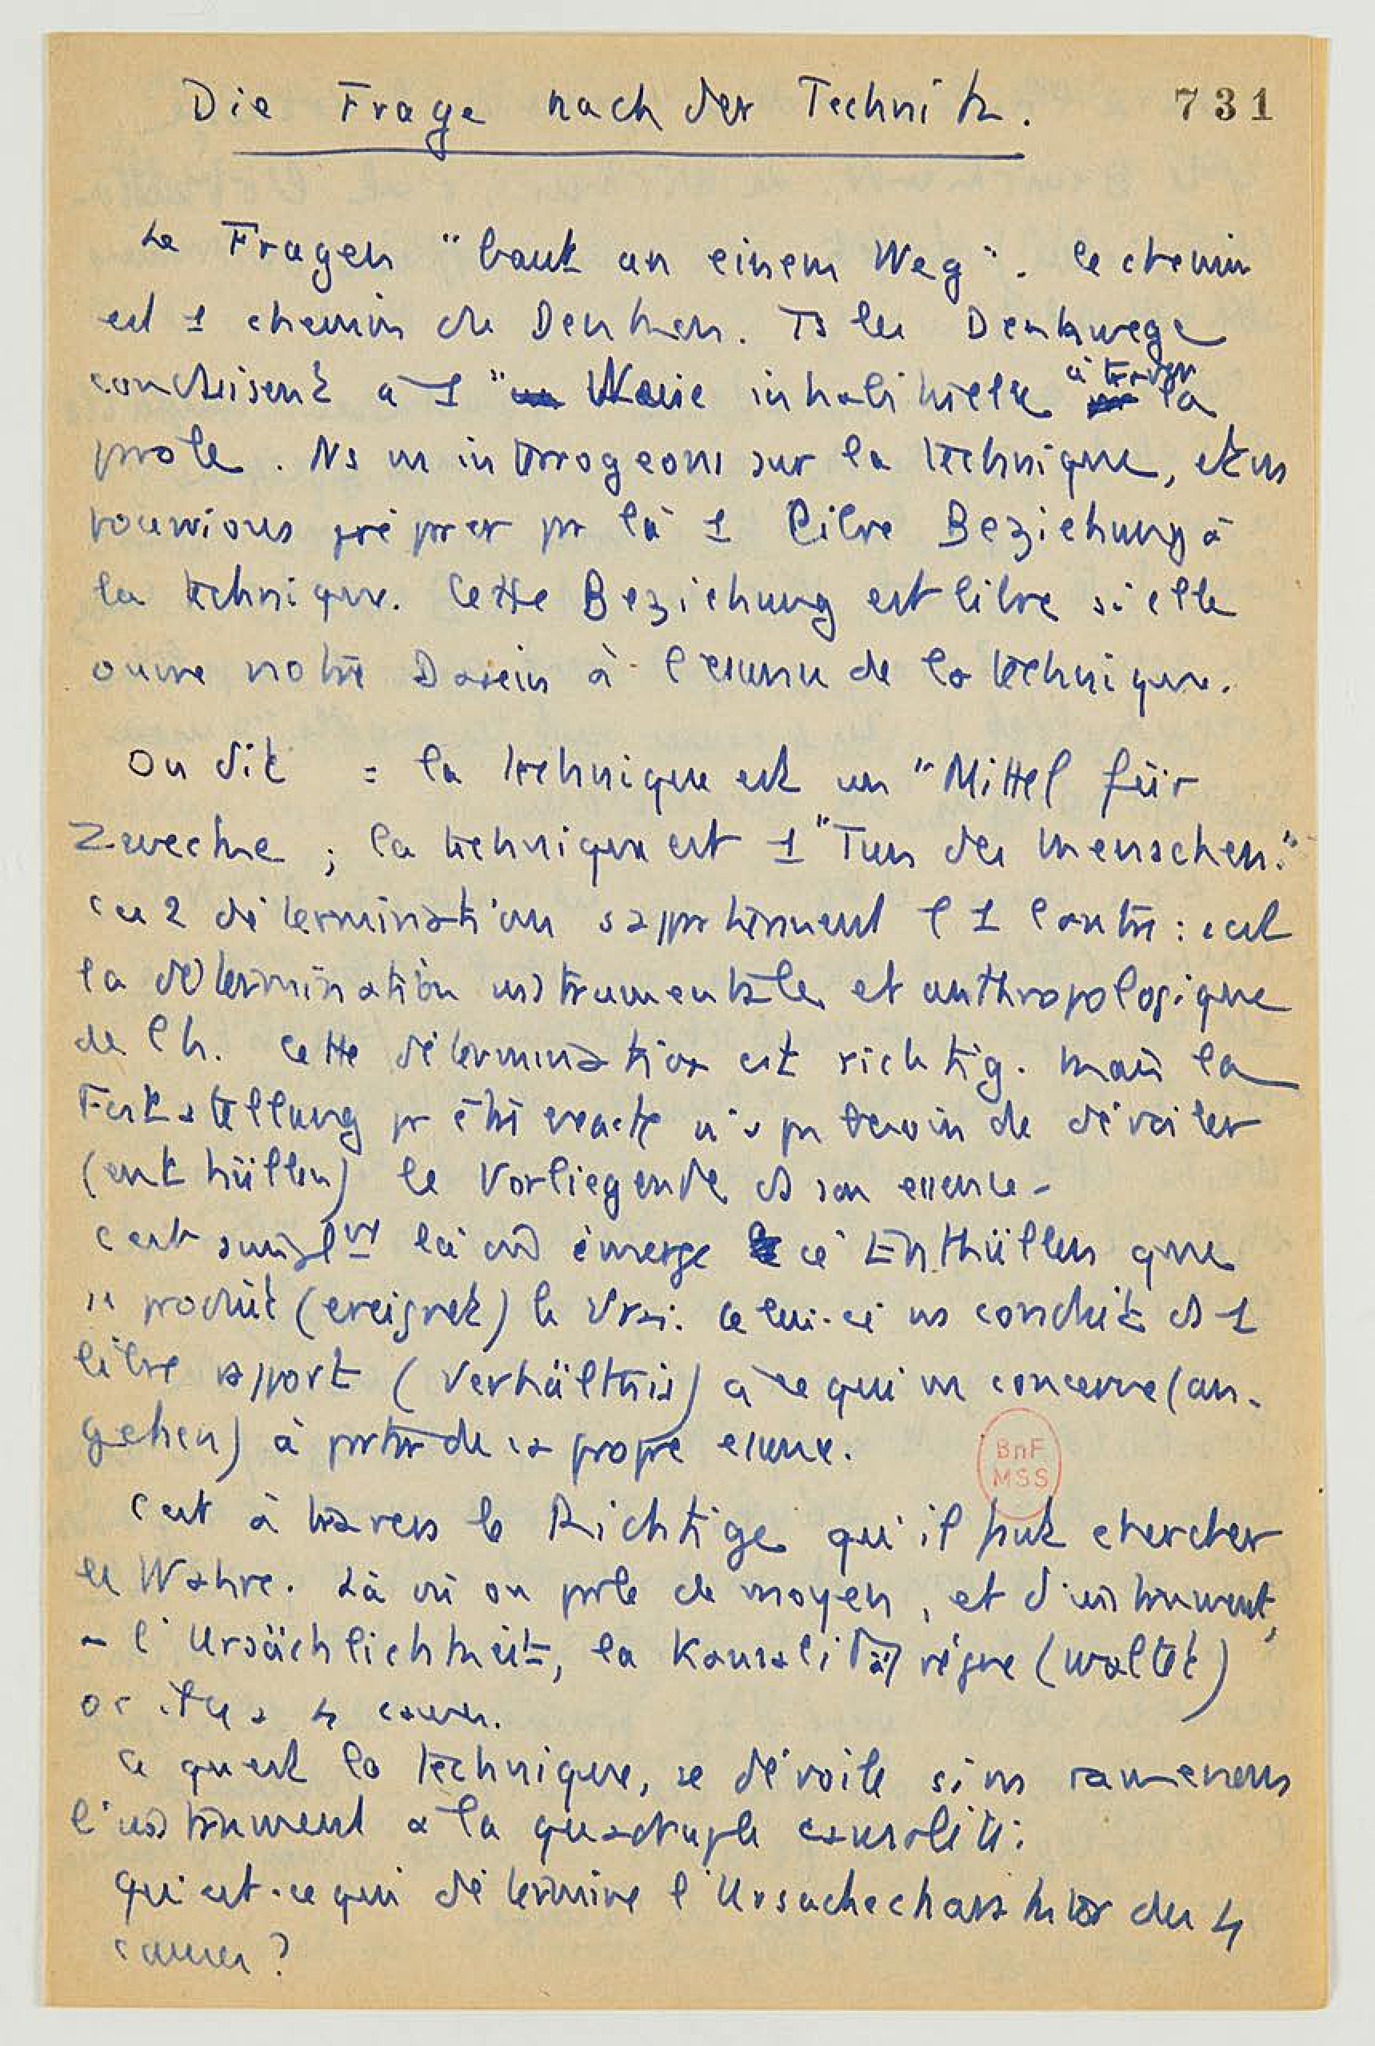 Die Frage nach der Technik.
731
Le Fragen "baut an einem Weg". Le chemin
est 1 chemin du Denken. Ts les Denkwege
conduisent à 1 " Weise inhabituelle à traver la
prole. Ns ns interrogeons sur la technique, et ns
voudrions préprer pr là 1 libre Beziehung à
la technique. Cette Beziehung est libre si elle
ouvre notre Dasein à l'essence de la technique.
On dit : la technique est un "Mittel für
Zwecke ; la technique est 1 "Tun des Menschen."
Ces 2 détermination s'apprtiennent l'1 l'autre : c'est
la détermination instrumentale et anthropologique
de l'h. Cette détermination est richtig. Mais la
Feststellung pr être exacte n'a ps besoin de dévoiler
(enthüllen) le Vorliegende ds son essence.
C'est simplmt là où émerge ce Enthüllen que
se produit (ereignet) le Vrai. Celui-ci ns conduit ds 1
libre rapport (Verhältnis) à ce qui ns concerne (an-
gehen) à prtir de sa propre essence.
BnF
MSS
C'est à travers le Richtige qu'il faut chercher
le Wahre. Là où on prle de moyen, et d'instrument,
l'Ursächlichkeit, la Kausalität règne (waltet)
or il y a 4 causes.
Ce qu'est la technique, se dévoile si ns ramenons
l'instrument à la quadruple causalité.
Qu'est-ce qui détermine l'Ursachecharakter des 4
causes ?